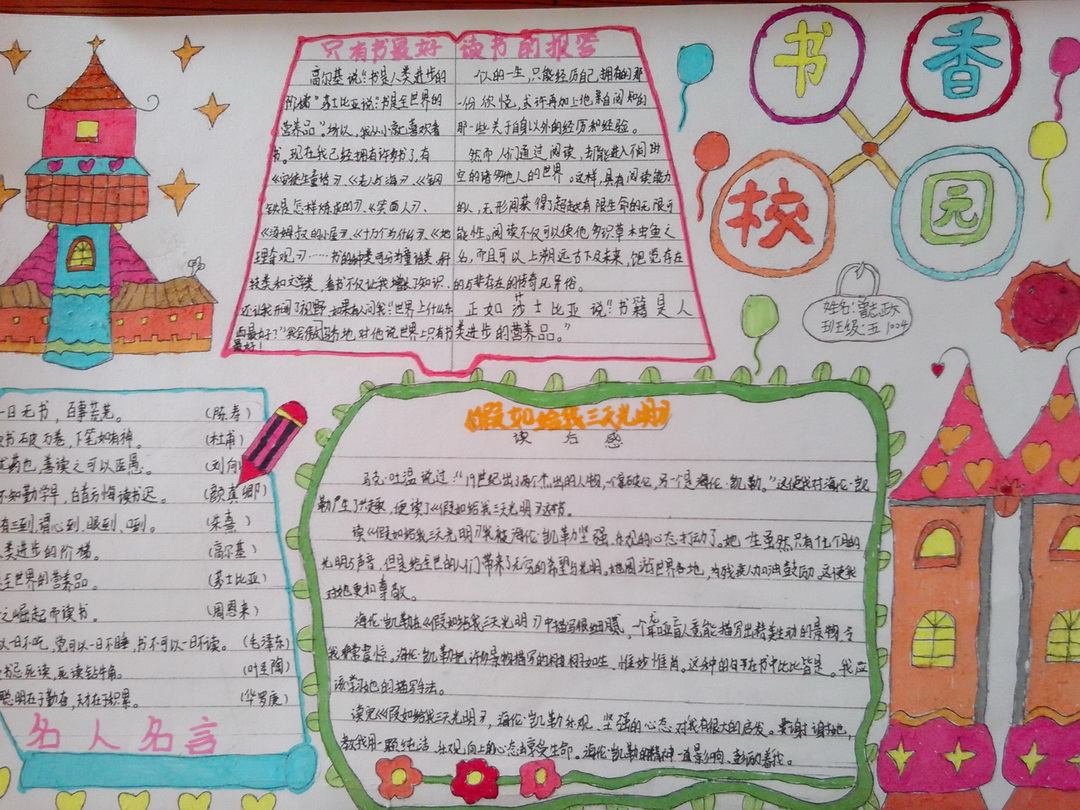 书香
校园
姓名:
班级:五
只有书最好
高尔基说:"书是人类进步的
阶梯"莎士比亚说:"书是全世界的
营养品"所以,我从小就喜欢看
书。现在我已经拥有许多书了,有
《安徒生童话》、《老人与海》、《钢
铁是怎样炼成的》、《笑面人》、
《汤姆叔叔的小屋》、《十万个为什么》、《地
理奇观》……书的种类可分为童话类、科
技类和文学类,看书不仅让我增长了知识,
还让我开阔了视野,如果有人问我:"世界上什么东
西最好?"我会骄傲地对他说世界上只有书
最好!
读书的报答
人的一生,只能经历自己拥有的那
一份欣悦,或许再加上他亲自闻知的
那一些关于自身以外的经历和经验。
然而,人们通过阅读,却能进入不同时
空的诸多他人的世界。这样,具有阅读能力
的人,无形间获得了超越有限生命的无限可
能性。阅读不仅可以使他多识草木虫鱼之
名,而且可以上溯远古下及未来,饱览存在
的与非存在的奇风异俗。
正如莎士比亚说:"书籍是人
类进步的营养品。"
一日无书,百事荒芜。(陈寿)
书破万卷,下笔如有神。(杜甫)
药也,善读之可以医愚。(刘向)
不知勤学早,白首方悔读书迟。(颜真卿)
有三到,谓心到、眼到、口到。(朱熹)
类进步的阶梯。(高尔基)
全世界的营养品。(莎士比亚)
之崛起而读书。(周恩来)
以一日不吃,觉可以一日不睡,书不可以一日不读。(毛泽东)
书忌死读,死读钻牛角。(叶圣陶)
聪明在于勤奋,天才在于积累。(华罗庚)
名人名言
《假如给我三天光明》
读后感
马克·吐温说过:"19世纪出了两个杰出的人物,一个是拿破仑,另一个是海伦·凯勒。"这使我对海伦·凯
勒产生了兴趣,便读了《假如给我三天光明》这本书。
读《假如给我三天光明》我被海伦·凯勒坚强、乐观的心态打动了。她一生虽然只有19个月的
光明与声音,但是给全世的人们带来了无穷的希望与光明。她周游世界各地,为残疾人加油鼓励,这使我
对她更加尊敬。
海伦·凯勒在《假如给我三天光明》中描写很细腻,一个聋哑盲人竟能描写出精美生动的景物,令
我非常震惊。海伦·凯勒把许多景物描写的栩栩如生、惟妙惟肖。这种的句子在书中比比皆是。我应
该学习她的描写手法。
读完《假如给我三天光明》,海伦·凯勒乐观、坚强的心态对我有很大的启发。要谢谢她,
教我用一颗纯洁、乐观、向上的心态去享受生命。海伦·凯勒的精神一直影响、鼓励着我。